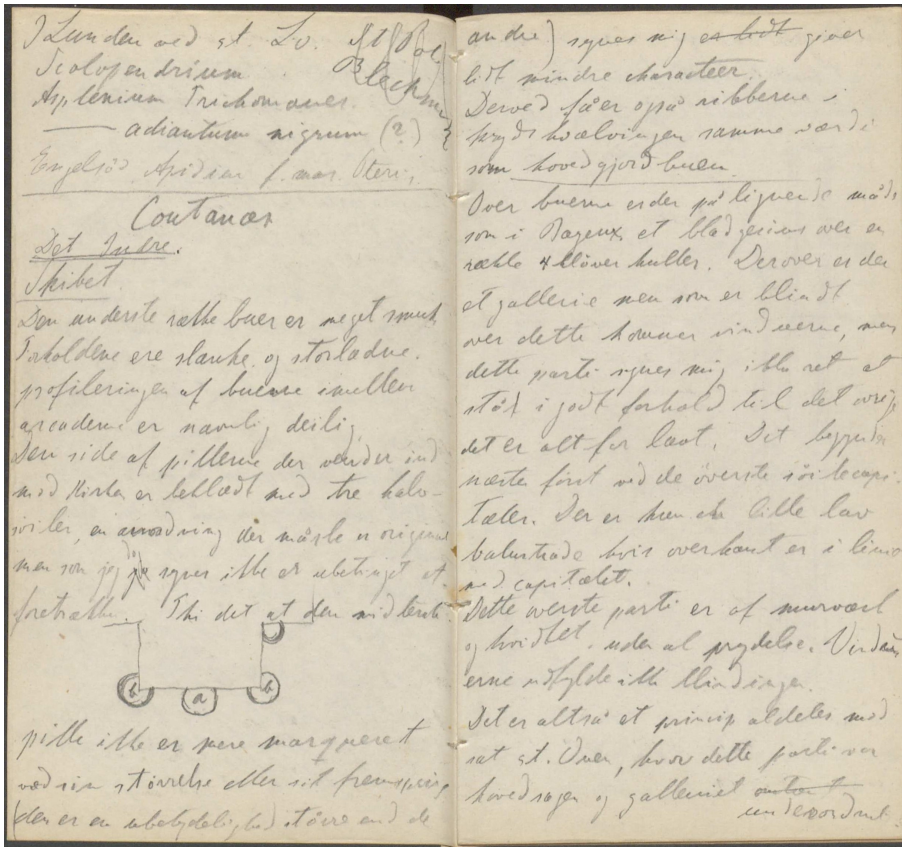 I Lunden ved st. Lo.
Scolopendrium
Blechnum
Asplenium Trichomanes.
—— adiantum nigrum (?)
Engelsöd. Aspidium f. mas. Pteris
Coutances
Det Indre.
Skibet.
Den underste række buer er meget smuk
Forholdene ere slanke og storladne.
profileringen af buerne imellem
arcaderne er navnlig deilig.
Den side af pillerne der vender ind
mod Kirken er beklædt med tre halv-
söiler, en anordning der måske er original
men som jeg synes ikke er ubetinget at
foretrække. Thi det at den midterste
b a b
pille ikke er mere marqueret
ved sin störrelse eller sit fremspring
(den er en ubetydelighed större end de
andre) synes mig er lidt giver
lidt mindre characteer.
Derved fåer også ribberne i
krydshvælvingen samme værdi
som hovedgjordbuen.
Over buerne er der på lignende måde
som i Bayeux et bladgesims over en
række 4 klöver huller. Derover er der
et gallerie men som er blindt
over dette kommer vinduerne, men
dette parti synes mig ikke ret at
stå i godt forhold til det övrige
det er alt for lavt. Det begynder
næsten först ved de överste söilecapi-
tæler. Der er kun en lille lav
balustrade hvis overkant er i linie
med capitælet.
Dette överste parti er af murværk
og hvidtet. uden al prydelse. Vindu
erne udfylde ikke blindingen.
Det er altså et princip aldeles mod
sat st. Ouen, hvor dette parti var
hovedsagen og galleriet
underordnet.